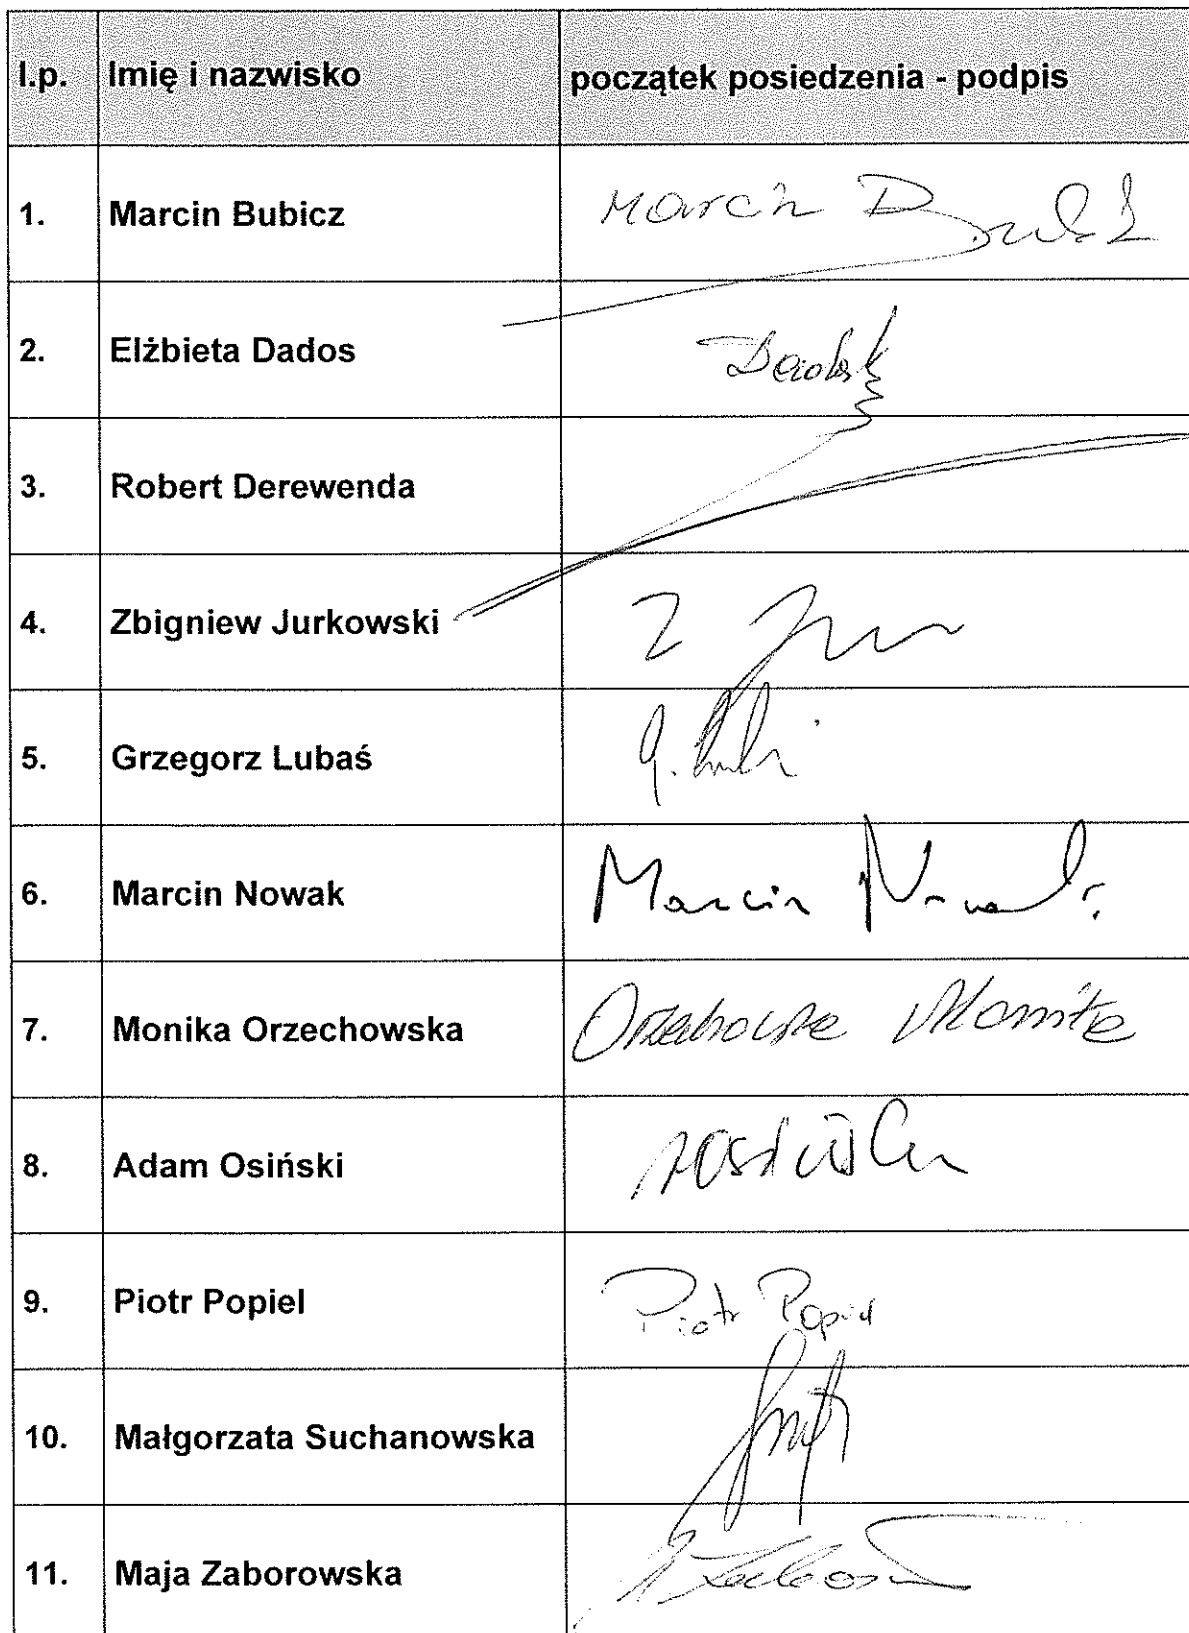 l.p. Imię i nazwisko początek posiedzenia - podpis
1. Marcin Bubicz Marcin
2. Elżbieta Dados
3. Robert Derewenda
4. Zbigniew Jurkowski Z
5. Grzegorz Lubaś G.
6. Marcin Nowak Marcin Nowak
7. Monika Orzechowska Orzechowska Monika
8. Adam Osiński
9. Piotr Popiel Piotr Popiel
10. Małgorzata Suchanowska
11. Maja Zaborowska